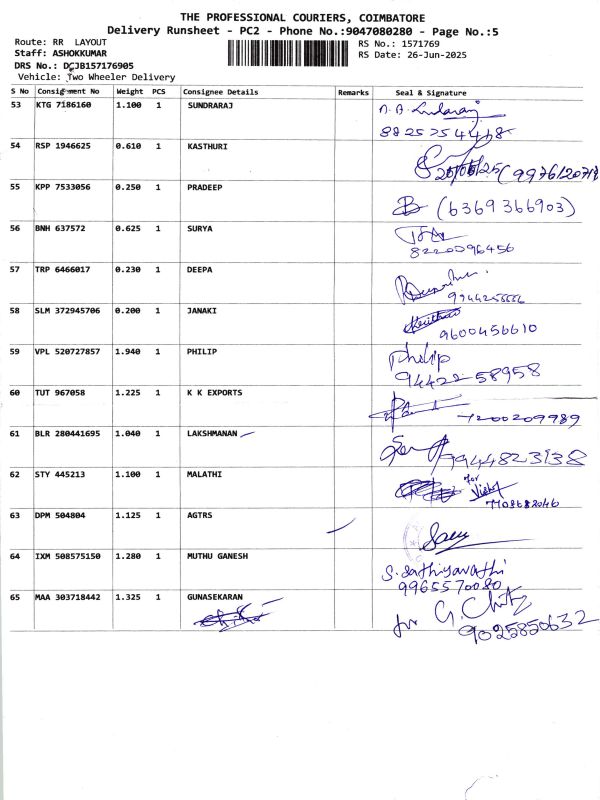 THE PROFESSIONAL COURIERS, COIMBATORE
Delivery Runsheet - PC2 - Phone No.:9047080280 - Page No.:5
Route: RR LAYOUT
RS No.: 1571769
Staff: ASHOKKUMAR
RS Date: 26-Jun-2025
DRS No.: DCJB157176905
Vehicle: Two Wheeler Delivery
S No Consignment No Weight PCS Consignee Details Remarks Seal & Signature
53 KTG 7186160 1.100 1 SUNDRARAJ
8825754468
54 RSP 1946625 0.610 1 KASTHURI
55 KPP 7533056 0.250 1 PRADEEP
B (6369366903)
56 BNH 637572 0.625 1 SURYA
8220096456
57 TRP 6466017 0.230 1 DEEPA
58 SLM 372945706 0.200 1 JANAKI
9600456610
59 VPL 520727857 1.940 1 PHILIP
Philip
94422 58958
60 TUT 967058 1.225 1 K K EXPORTS
7200209989
61 BLR 280441695 1.040 1 LAKSHMANAN
7944823138
62 STY 445213 1.100 1 MALATHI
for
7708682046
63 DPM 504804 1.125 1 AGTRS
64 IXM 508575150 1.280 1 MUTHU GANESH
S. Sathiyavathi
9965570080
65 MAA 303718442 1.325 1 GUNASEKARAN
for G. Chitz
9025850632